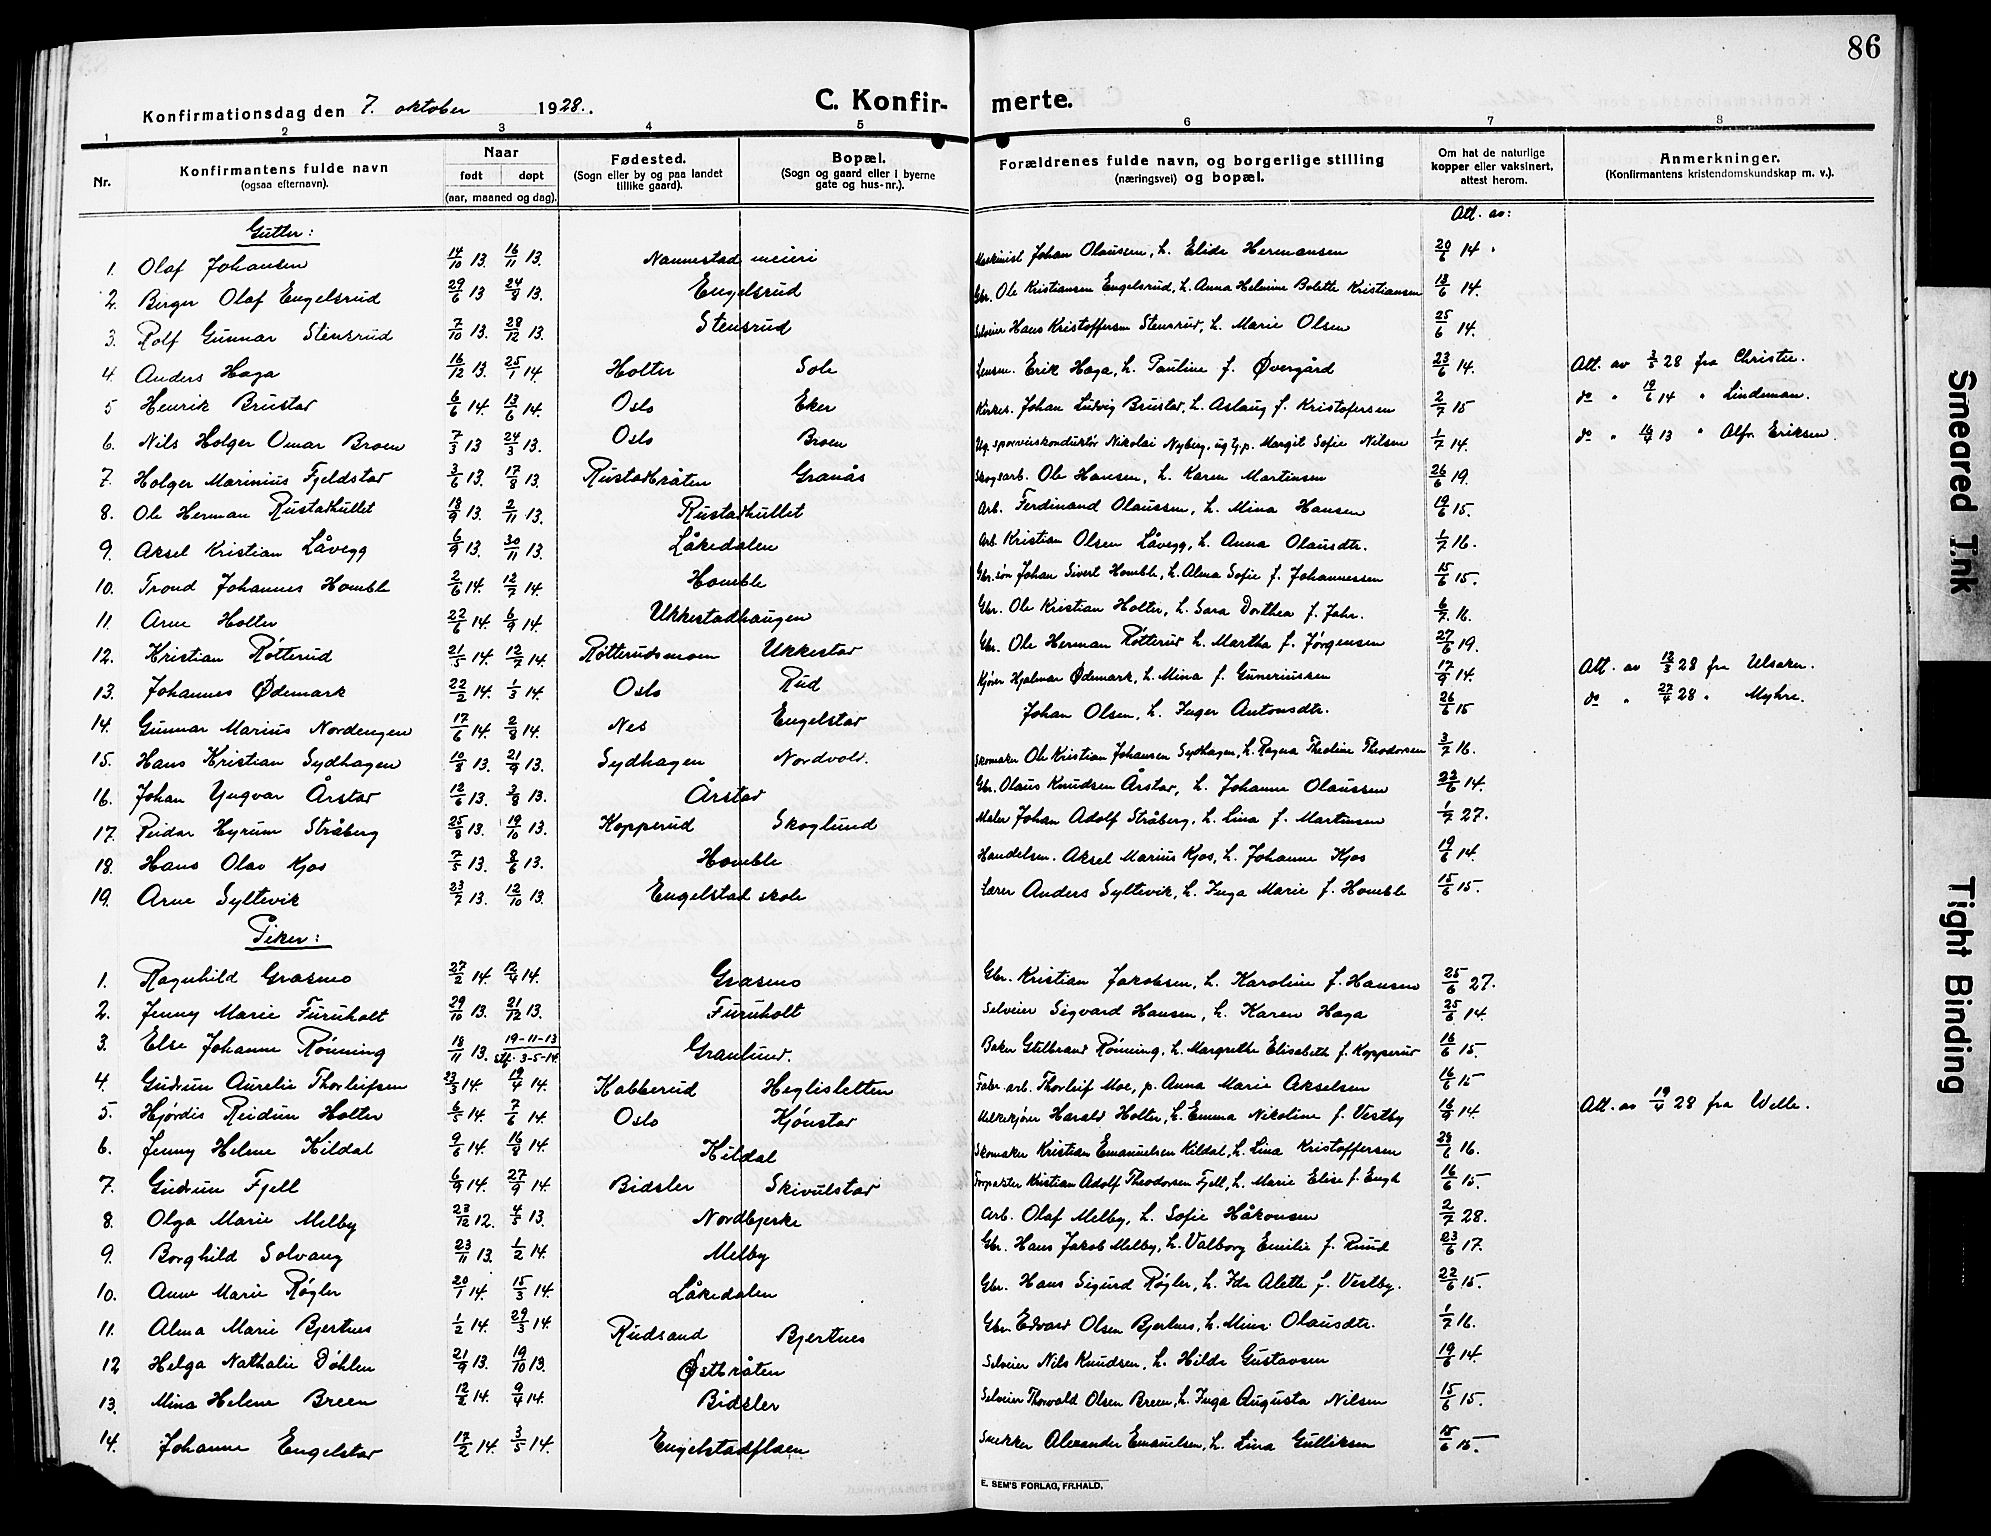 86
Konfirmationsdag den 7. oktober 1928.
C. Konfirmerte.
1 2 3 4 5 6 7 8
Nr. Konfirmantens fulde navn (ogsaa efternavn). Naar født døpt (aar, maaned og dag). Fødested. (Sogn eller by og paa landet tillike gaard). Bopæl. (Sogn og gaard eller i byerne gate og hus-nr.). Forældrenes fulde navn, og borgerlige stilling (næringsvei) og bopæl. Om hat de naturlige kopper eller vaksinert, attest herom. Anmerkninger. (Konfirmantens kristendomskundskap m. v.).
Att. av:
Gutter:
1. Olaf Johansen 14/10 13. 16/11 13. Nannestad meieri Maskinist Johan Olausen, h. Elide Hermansen 20/6 14
2. Berger Olaf Engelsrud 29/6 13 24/8 13. Engelsrud Gbr. Ole Kristiansen Engelsrud, h. Anna Helmine Bolette Kristiansen 18/6 14.
3. Rolf Gunnar Stensrud 7/10 13. 28/12 13. Stensrud Selveier Hans Kristoffersen Stensrud, h. Marie Olsen 25/6 14.
4. Anders Haga 16/12 13. 25/1 14. Holter Sole Lensm. Erik Haga, h. Pauline f. Øvergård 23/6 14. Att. av 3/5 28 fra Christie.
5 Henrik Brustad 6/6 14. 13/6 14. Oslo Eker Kirkes. Johan Ludvig Brustad, h. Aslaug f. Kristofersen 2/7 15 do " 19/6 14 " Lindeman.
6. Nils Holger Omar Broen 7/3 13 24/3 13. Oslo Broen Ug. sporveiskonduktør Nikolai Nyberg, ug tj.p. Margit Sofie Nilsen 1/7 14. do " 16/4 13 " Alfr. Eriksen.
7. Holger Marinius Fjeldstad 3/6 13. 17/8 13. Rustadbråten Granås Skogsarb. Ole Hansen, h. Karen Martinsen 26/6 19.
8. Ole Herman Rustadhullet 18/9 13. 2/11 13. Rustadhullet Arb. Ferdinand Olaussen, h. Mina Hansen 19/6 15.
9. Aksel Kristian Låvegg 6/9 13. 30/11 13. Låkedalen Arb. Kristian Olsen Låvegg, h. Anna Olausdtr. 1/7 16.
10. Trond Johannes Homble 2/6 14. 12/7 14. Homble Gbr.søn Johan Sivert Homble, h. Alma Sofie f. Johannessen 15/6 15.
11. Arne Holter 22/6 14. 6/9 14. Ukkestadhaugen Gbr. Ole Kristian Holter, h. Sara Dorthea f. Jahr. 6/7 16.
12. Kristian Røtterud 21/5 14. 12/7 14. Røtterudsmoen Ukkestad Gbr. Ole Herman Røtterud h. Martha f. Jørgensen 27/6 19.
13. Johannes Ødemark 22/2 14. 1/3 14. Oslo Rud Kjører Hjalmar Ødemark, h. Mina f. Guneriussen 17/9 14. Att. av 12/3 28 fra Ulsaker.
14. Gunnar Marius Nordengen 17/6 14. 2/8 14. Nes Engelstad Johan Olsen, h. Inger Antonsdtr. 26/6 15 do " 27/4 28 " Myhre.
15. Hans Kristian Sydhagen 10/8 13. 21/9 13. Sydhagen Nordvold. Skomaker Ole Kristian Johansen Sydhagen, h. Ragna Theoline Theodorsen 3/7 16.
16. Johan Yngvar Årstad 12/6 13. 3/8 13. Årstad Gbr. Olaus Knudsen Årstad, h. Johanne Olaussen 22/6 14.
17. Reidar Hyrum Stråberg 25/8 13. 19/10 13. Kopperud Skoglund Maler Johan Adolf Stråberg, h. Lina f. Martinsen 1/7 27.
18. Hans Olav Kjos 7/5 13. 8/6 13. Homble Handelsm. Aksel Marius Kjos, h. Johanne Kjos 19/6 14.
19. Arne Syltevik 23/7 13. 12/10 13. Engelstad skole Lærer Anders Syltevik, h. Inga Marie f. Homble 15/6 15.
Piker:
1. Ragnhild Grasmo 27/2 14. 12/4 14. Grasmo Gbr. Kristian Jakobsen, h. Karoline f. Hansen 25/6 27.
2. Jenny Marie Furuholt 29/10 13. 21/12 13. Furuholt Selveier Sigvard Hansen, h. Karen Haga 25/6 14.
3. Else Johanne Rønning 18/11 13. 19-11-13 stf. 3-5-14. Granlund. Baker Gulbrand Rønning, h. Margrethe Elisabeth f. Kopperud 16/6 15.
4. Gudrun Aurelie Thorleifsen 23/3 14. 19/4 14. Kabberud Heglisletten Fabr. arb. Thorleif Moe, p. Anna Marie Akselsen 16/6 15
5. Hjørdis Reidun Holter 6/5 14. 7/6 14. Oslo Kjønstad Melkekjører Harald Holter, h. Emma Nikoline f. Vestby 16/9 14. Att. av 19/4 28 fra Welle.
6. Jenny Helene Kildal 9/6 14. 16/8 14. Kildal Skomaker Kristian Emanuelsen Kildal, h. Lina Kristoffersen 28/6 16.
7. Gudrun Fjell 6/9 14. 27/9 14. Bidsler Skivulstad Forpakter Kristian Adolf Theodorsen Fjell, h. Marie Elise f. Engh 16/6 15.
8. Olga Marie Melby 23/12 12. 4/5 13. Nordbjerke Arb. Olaf Melby, h. Sofie Håkonsen 2/7 28.
9. Borghild Solvang 23/11 13. 1/2 14. Melby Gbr. Hans Jakob Melby, h. Valborg Emilie f. Ruud 23/6 17.
10. Anne Marie Røgler 20/1 14. 15/3 14. Låkedalen Gbr. Hans Sigurd Røgler, h. Ida Alette f. Vestby. 22/6 15.
11. Alma Marie Bjertnes 1/2 14. 29/3 14. Rudsand Bjertnes Gbr. Edvard Olsen Bjertnes, h. Mina Olausdtr. 1/7 16.
12 Helga Nathalie Døhlen 21/9 13. 19/10 13. Østbråten Selveier Nils Knudsen, h. Hilda Gustavsen 19/6 14.
13. Mina Helene Breen 12/2 14. 9/4 14. Bidsler Selveier Thorvald Olsen Breen, h. Inga Augusta Nilsen 15/6 15.
14. Johanne Engelstad 17/2 14. 3/5 14. Engelstadflaen Snekker Alexander Emanuelsen, h. Lina Gulliksen 15/6 15.
E. SEM'S FORLAG, FR.HALD.
Smeared Ink
Tight Binding